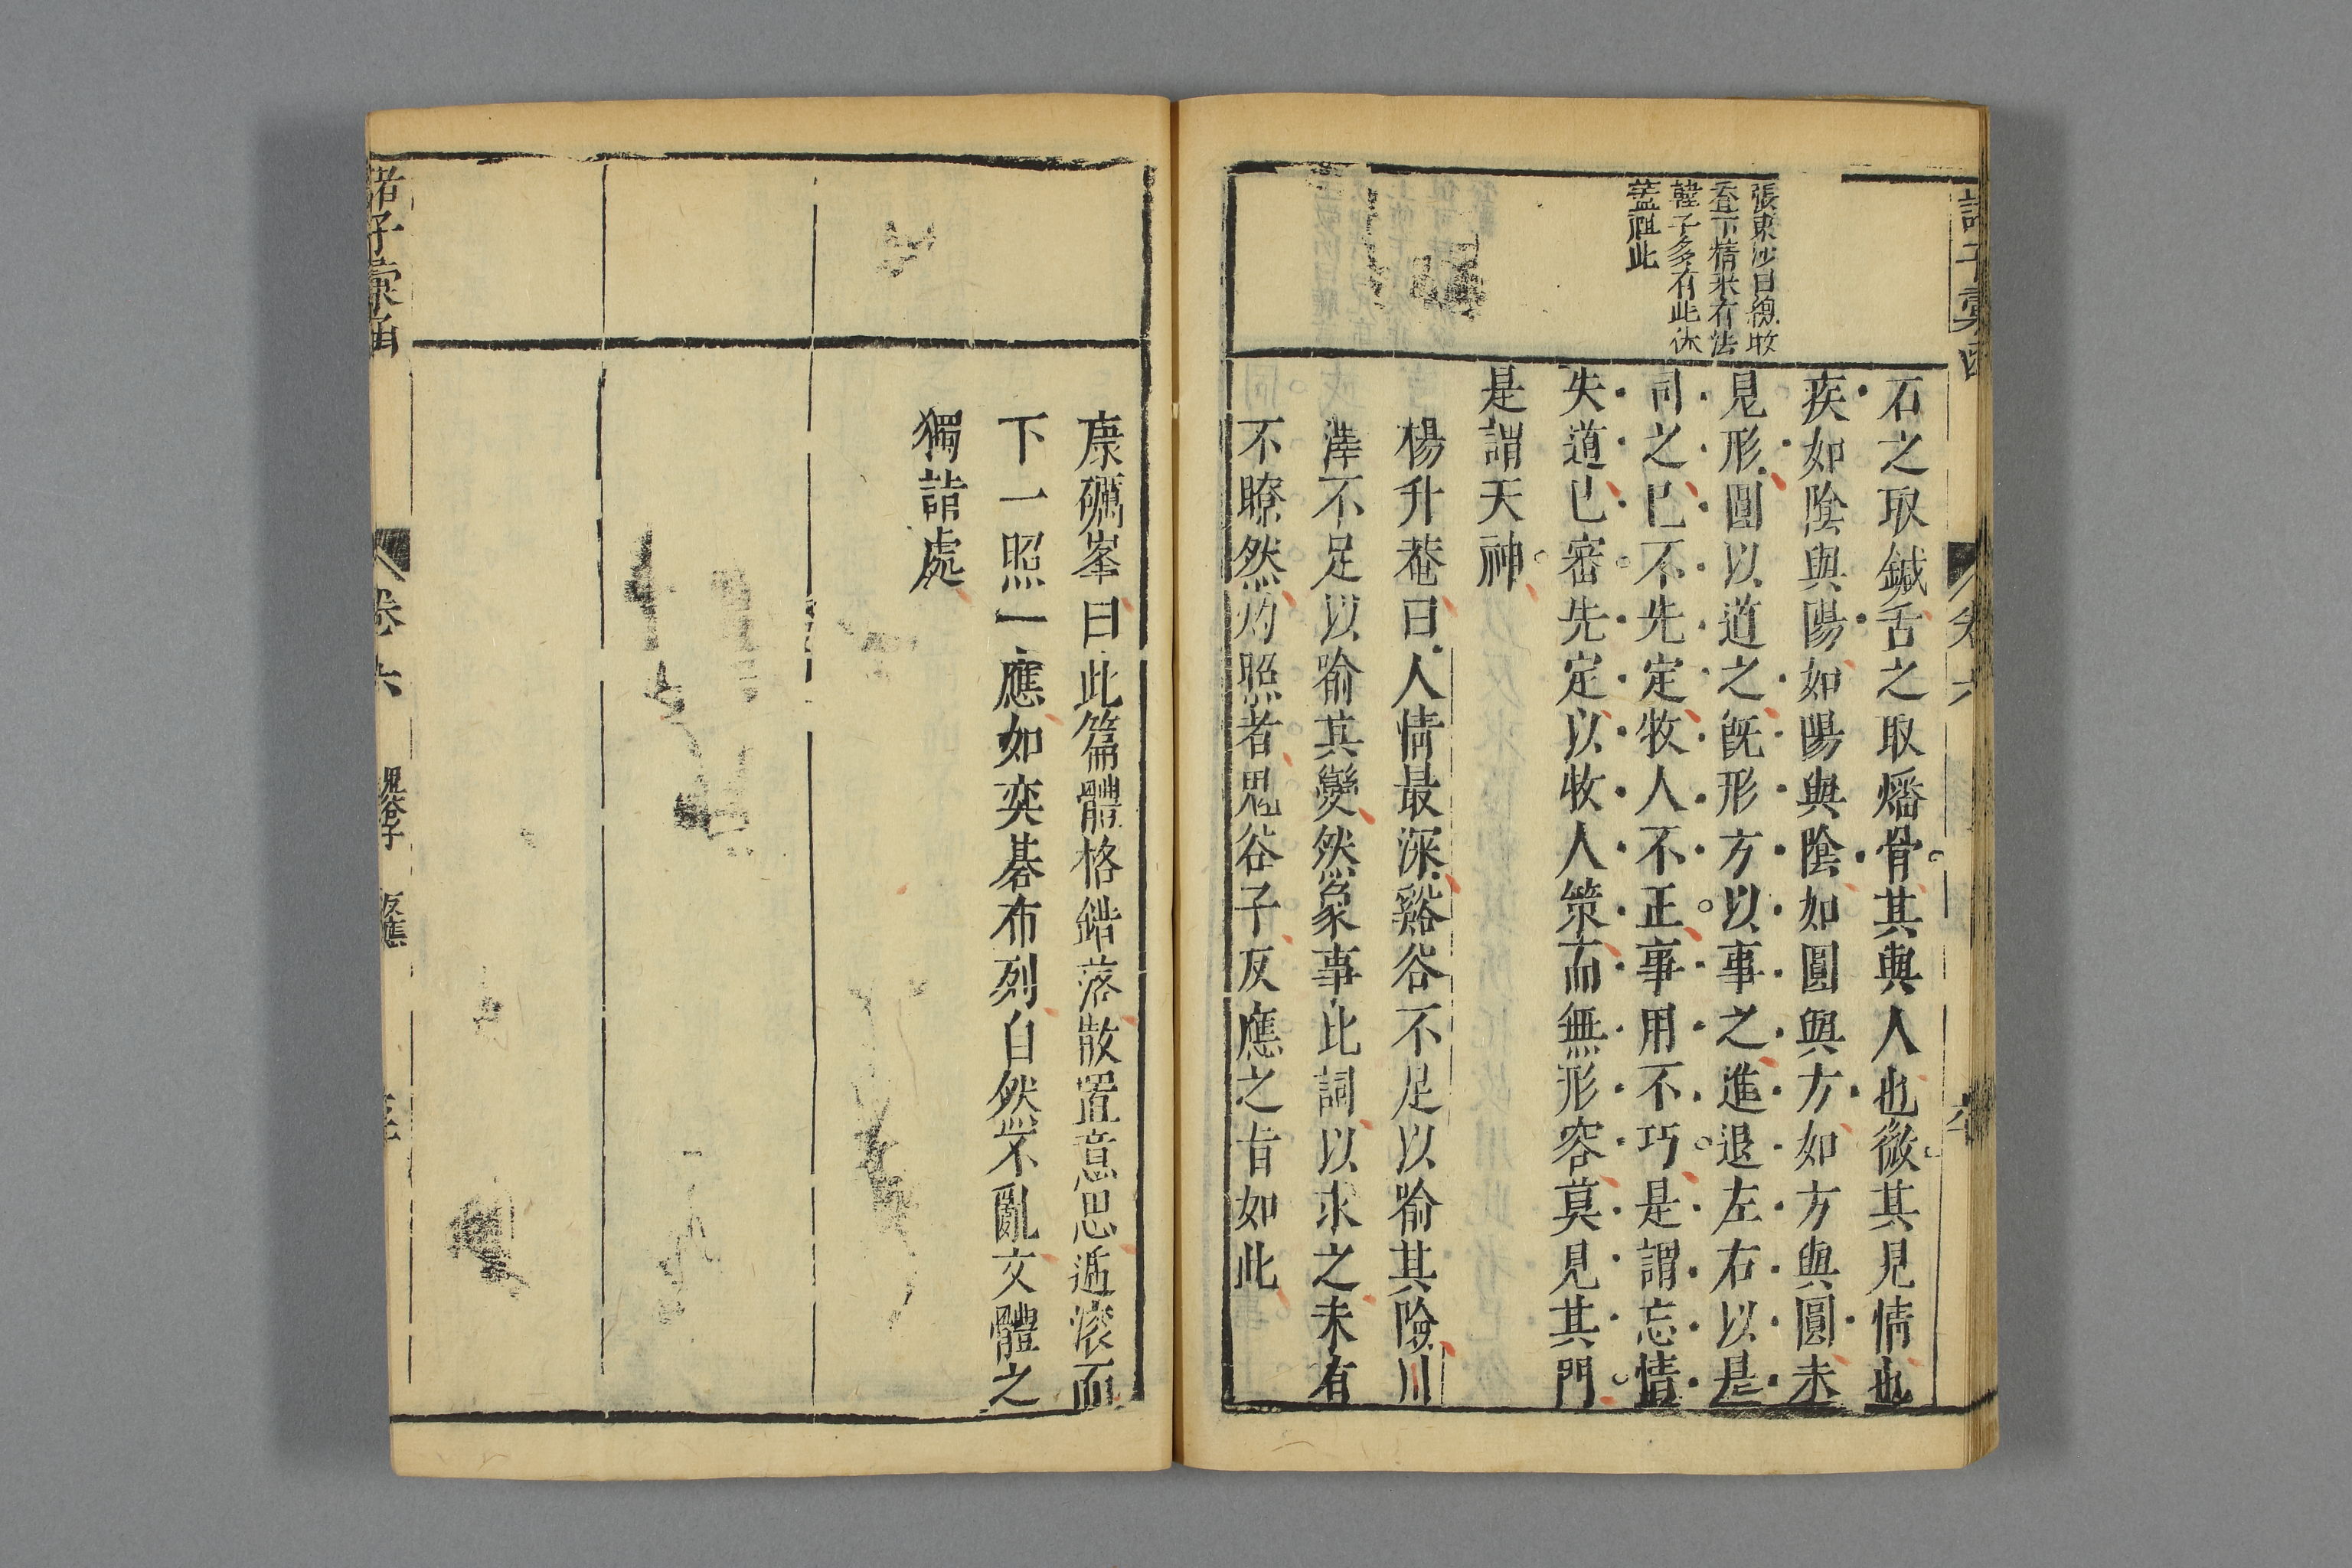 張東沙曰總收
吞下精采有法
韓子多有此休
蓋祖此
石之取鍼舌之取燔骨其與人也微其見情也
疾如陰與陽如陽與陰如圓與方如方與圓未
見形圓以道之旣形方以事之進退左右以是
司之已不先定牧人不正事用不巧是謂忘情
失道已審先定以牧人策而無形容莫見其門
是謂天神
楊升菴曰人情最深谿谷不足以喻其險川
澤不足以喻其變然象事此詞以求之未有
不瞭然灼照者鬼谷子反應之旨如此
康礪峯曰此篇體格錯落散置意思逓滚而
下一照一應如奕碁布列自然不亂文體之
獨詣處
諸子彙函
卷六
鬼谷子
反應